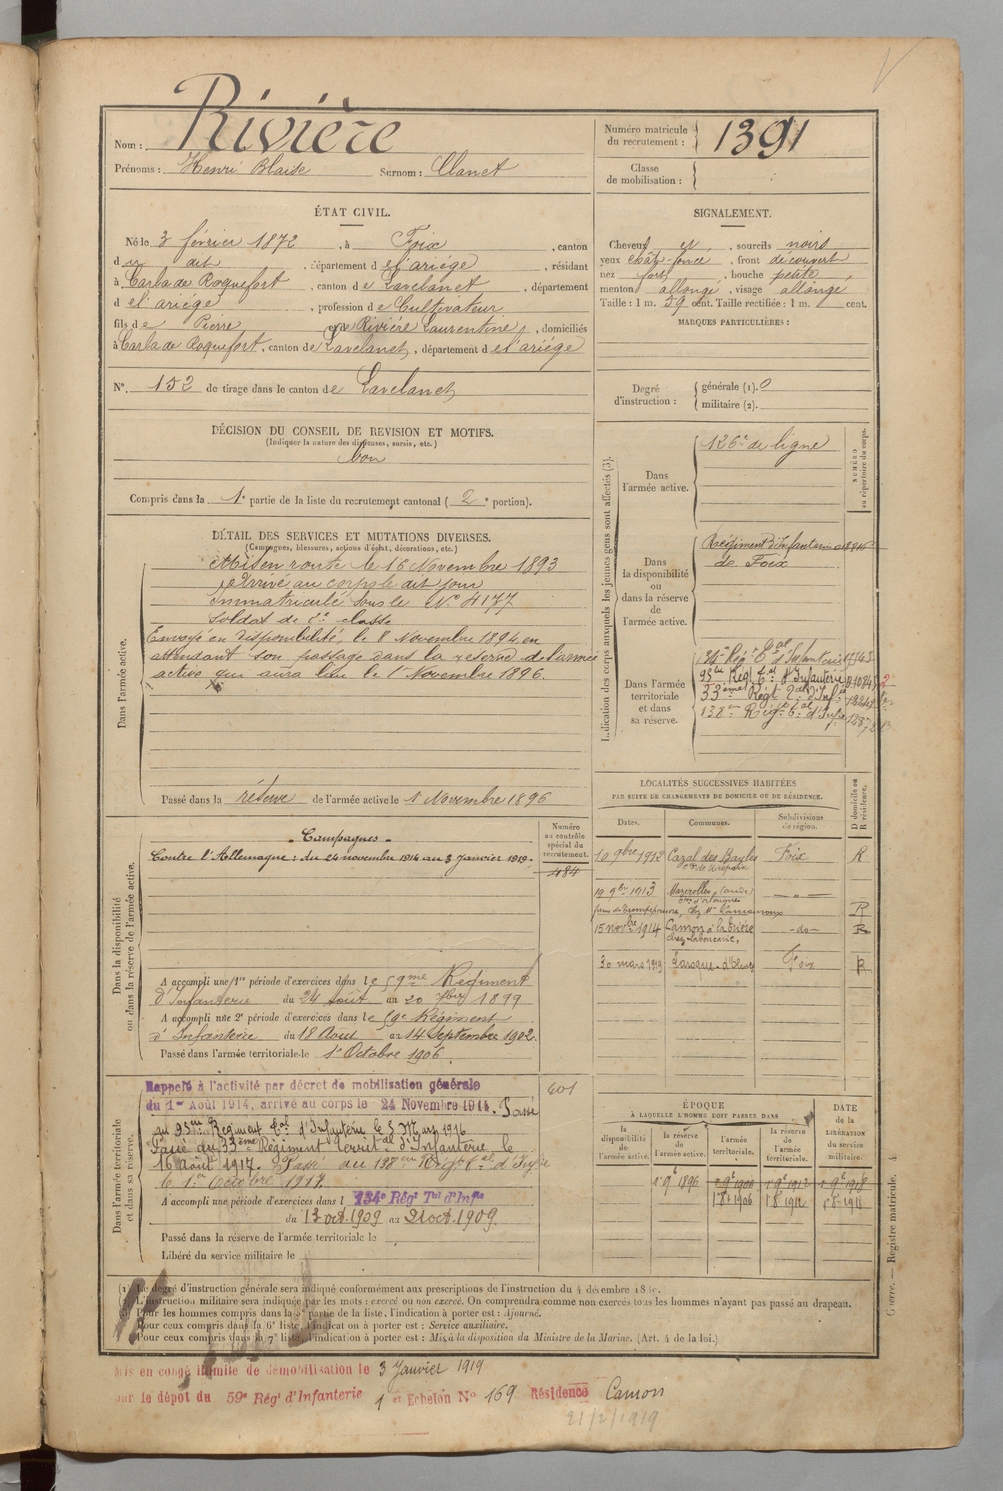 Nom : Rivière
Prénoms : Henri Blaise Surnom : Clanet
Numéro matricule du recrutement : 1391
Classe de mobilisation :
ÉTAT CIVIL.
Né le 3 février 1872, à Foix, canton
du dit, département de l'ariége, résidant
à Carla de Roquefort, canton de Lavelanet, département
de l'ariége, profession de Cultivateur
fils de Pierre et de Rivière Laurentine, domiciliés
à Carla de Roquefort, canton de Lavelanet, département de l'ariége
N° 152 de tirage dans le canton de Lavelanet
DÉCISION DU CONSEIL DE REVISION ET MOTIFS.
(Indiquer la nature des dispenses, sursis, etc.)
bon
Compris dans la 1e partie de la liste du recrutement cantonal (2e portion).
SIGNALEMENT.
Cheveux et, sourcils noirs
yeux chât-foncé, front découvert
nez fort, bouche petite
menton allongé, visage allongé
Taille : 1 m. 59 cent. Taille rectifiée : 1 m. cent.
MARQUES PARTICULIÈRES :
Degré d'instruction : générale (1). 0
militaire (2).
DÉTAIL DES SERVICES ET MUTATIONS DIVERSES.
(Campagnes, blessures, actions d'éclat, décorations, etc.)
Dans l'armée active.
Mis en route le 16 Novembre 1893
Arrivé au corps le dit jour
Immatriculé sous le N° 4177
Soldat de 2e classe
Envoyé en disponibilité le 8 Novembre 1894 en
attendant son passage dans la réserve de l'armée
active qui aura lieu le 1 Novembre 1896.
Passé dans la réserve de l'armée active le 1 Novembre 1896
Indication des corps auxquels les jeunes gens sont affectés (3).
NUMÉRO au répertoire du corps.
Dans l'armée active.
126e de ligne
Dans la disponibilité ou dans la réserve de l'armée active.
Régiment d'Infanterie
de Foix
Dans l'armée territoriale et dans sa réserve.
134e Régt Tal d'Infanterie
95em Régt Tal d'Infanterie
33ème Régt Tal d'Infie
138em Régt Tal d'Infie
Dans la disponibilité ou dans la réserve de l'armée active.
Numéro au contrôle spécial du recrutement.
484
Campagnes
Contre l'Allemagne : du 24 novembre 1914 au 3 Janvier 1919.
A accompli une 1re période d'exercices dans le 59me Régiment
d'Infanterie du 24 août au 20 7bre 1899
A accompli une 2e période d'exercices dans le 59e Régiment
d'Infanterie du 18 Aout au 14 Septembre 1902.
Passé dans l'armée territoriale le 1e Octobre 1906.
LOCALITÉS SUCCESSIVES HABITÉES
PAR SUITE DE CHANGEMENTS DE DOMICILE OU DE RÉSIDENCE.
Dates. Communes. Subdivisions de région. D domicile ou R résidence.
10 9bre 1912 Cazal des Bayles Foix R
cne de Mirepoix
19 9bre 1913 Mazerolles (aude) - " -
R
15 novbre 1914 Camon -do- R
30 mars 1919 Laroque-d'Olmes Foix R
Dans l'armée territoriale et dans sa réserve.
Rappelé à l'activité par décret de mobilisation générale 601
du 1er Août 1914, arrivé au corps le 24 Novembre 1914. Passé
au 95em Régiment Tal d'Infanterie le 5 Mars 1916
Passé du 33ème Régiment Territal d'Infanterie le
16 Août 1917. Passé au 138em Régt Tal d'Infie
le 1er Octobre 1917.
A accompli une période d'exercices dans l 134e Régt Tal d'Infie
du 13 oct. 1909 au 21 oct. 1909.
Passé dans la réserve de l'armée territoriale le
Libéré du service militaire le
ÉPOQUE
À LAQUELLE L'HOMME DOIT PASSER DANS
DATE DE LA LIBÉRATION du service militaire.
la disponibilité de l'armée active. la réserve de l'armée active. l'armée territoriale. la réserve de l'armée territoriale.
1 9e 1896 1 9e 1906 1 9e 1912 1 9e 1918
1 8e 1906 1 8e 1912 1 8e 1918
Guerre. — Registre matricule. 4
(1) Le degré d'instruction générale sera indiqué conformément aux prescriptions de l'instruction du 4 décembre
L'instruction militaire sera indiquée par les mots : exercé ou non exercé. On comprendra comme non exercés tous les hommes n'ayant pas passé au drapeau.
Pour les hommes compris dans la partie de la liste, l'indication à porter est : Ajourné.
Pour ceux compris dans la 6e liste, l'indication à porter est : Service auxiliaire.
Pour ceux compris dans la 7e liste, l'indication à porter est : Mis à la disposition du Ministre de la Marine. (Art. 4 de la loi.)
Mis en congé illimité de démobilisation le 3 Janvier 1919
par le dépôt du 59e Régt d'Infanterie 1er Echelon N° 169 Résidence Camon
21/2/1919